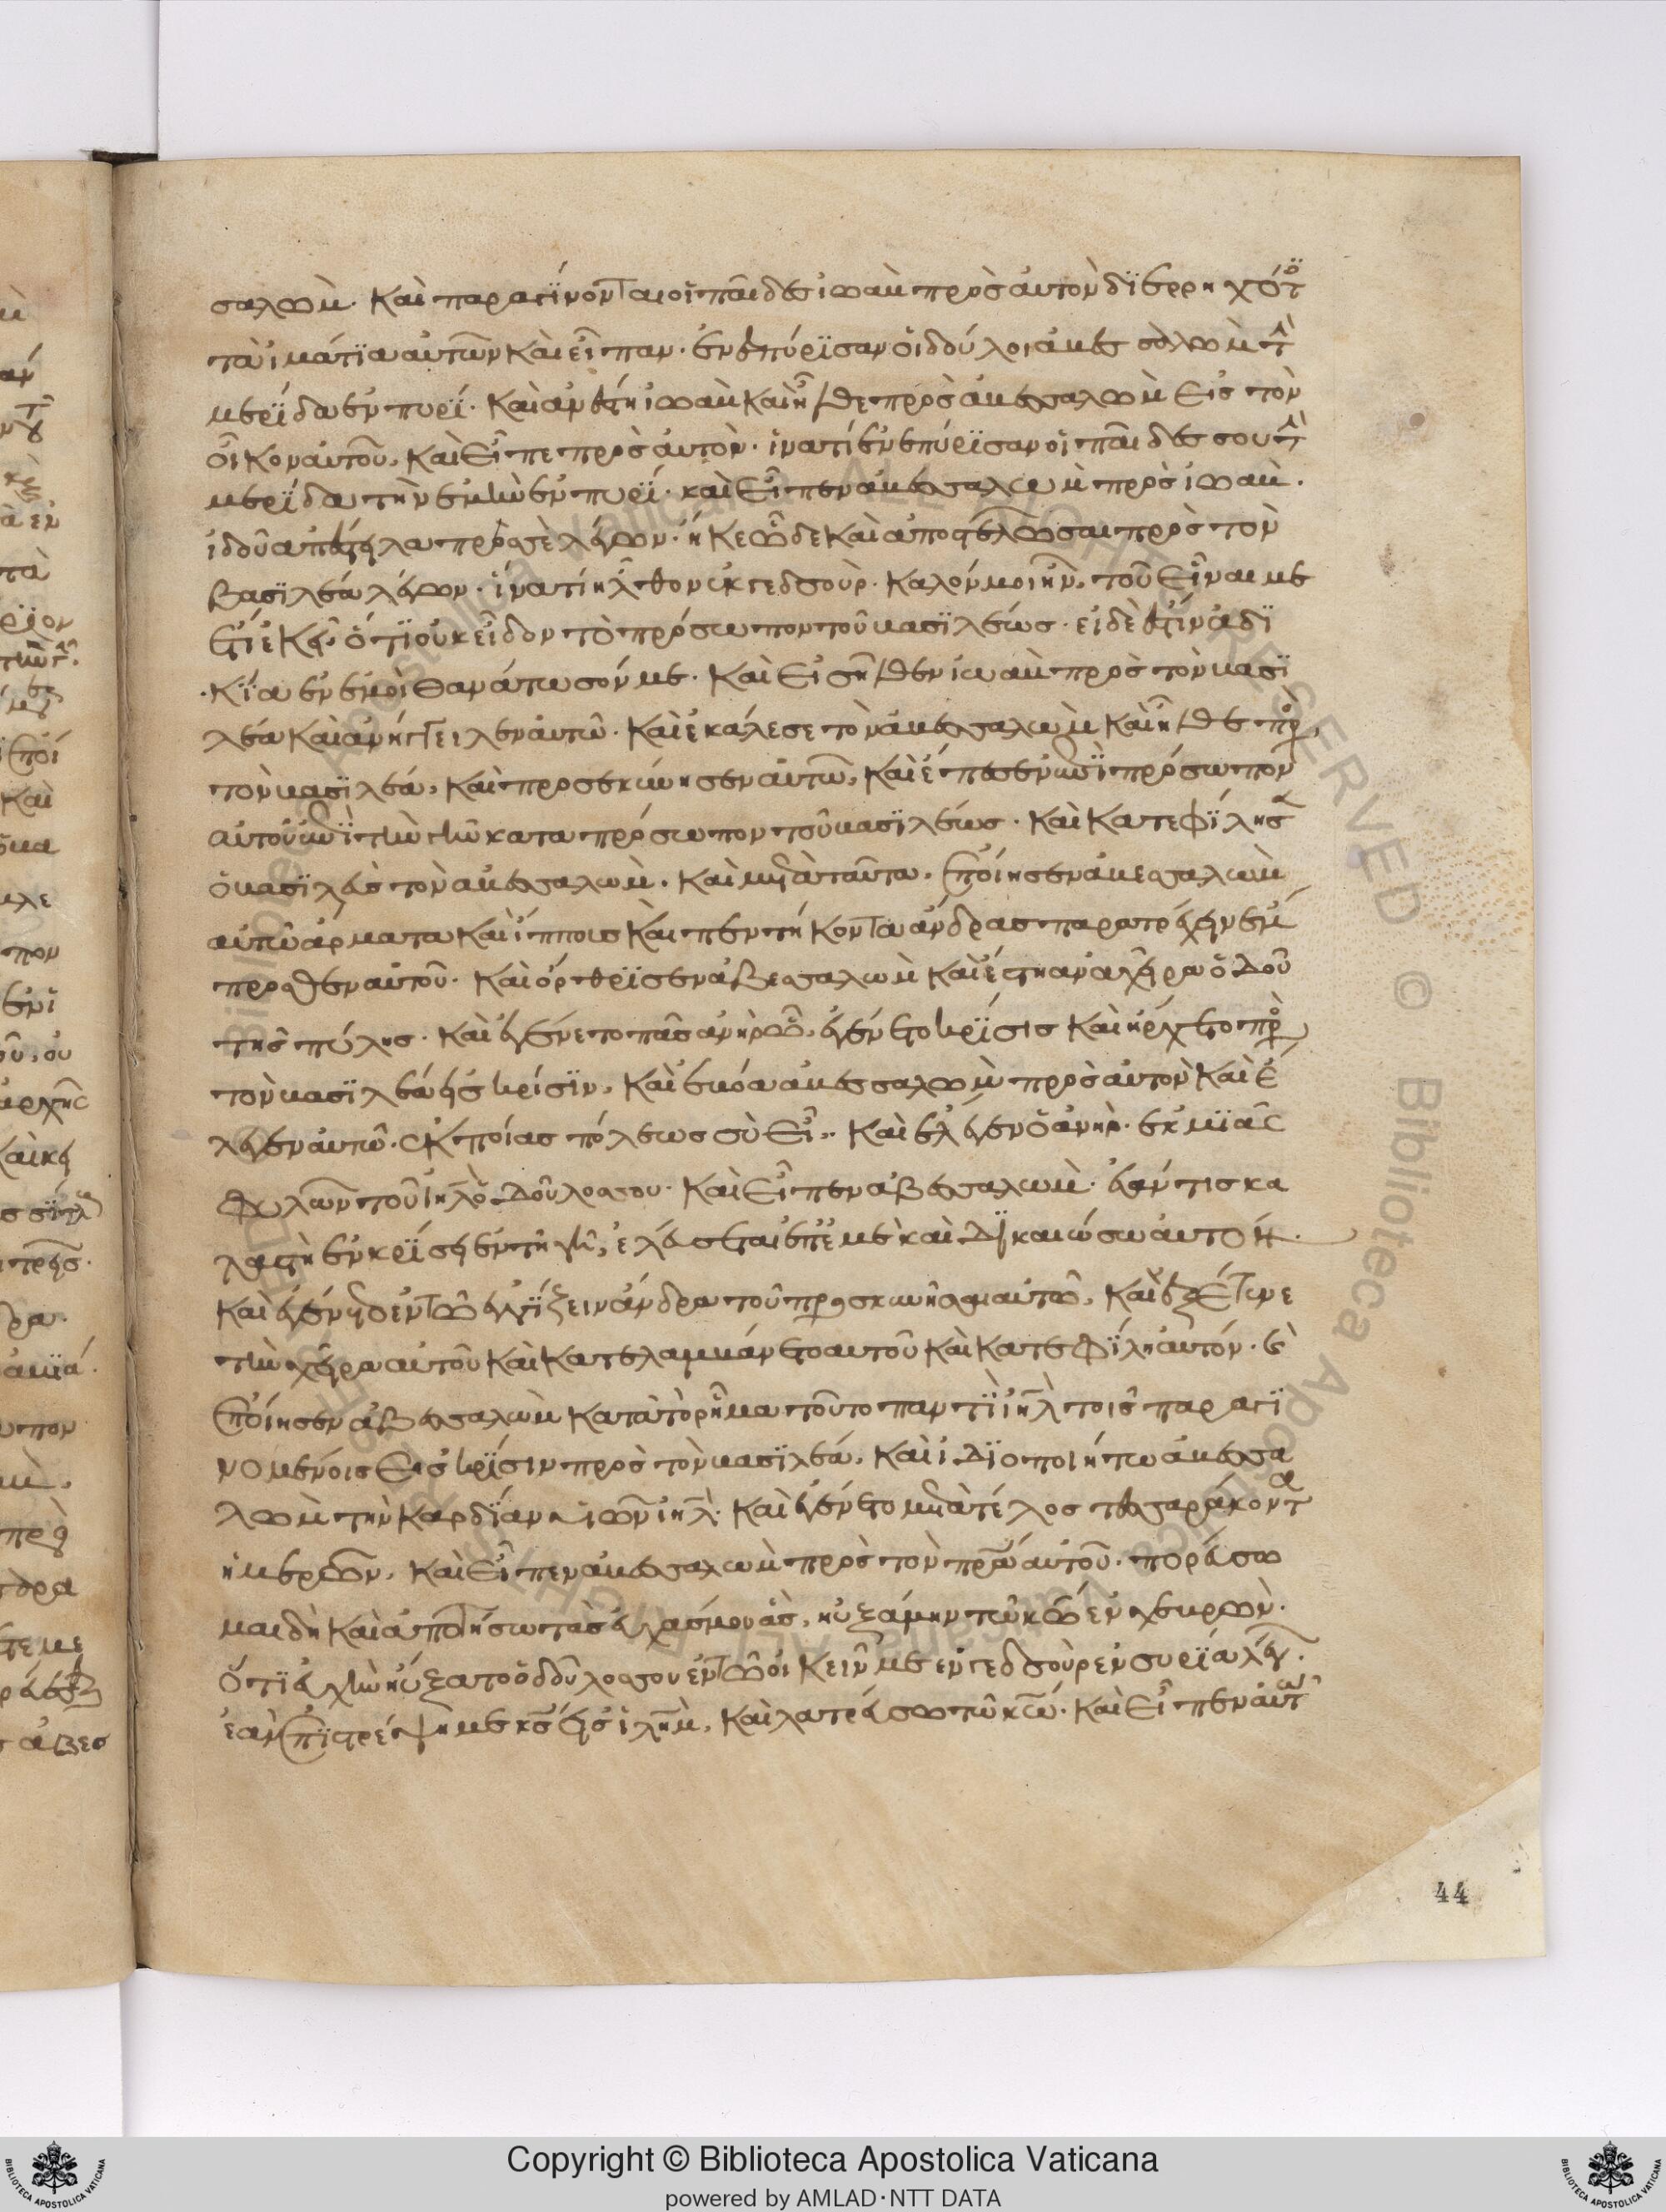 σαλωμ. Καὶ παραγίνονται οἱ παῖδες ἰωαβ πρὸς αὐτὸν διερρηχότ
τὰ ἱμάτια αὐτῶν καὶ εἶπαν. ἐνεπύρισαν οἱ δοῦλοι ἀβεσσαλωμ τ
μερίδα ἐν πυρί. Καὶ ἀνέστη ἰωαβ καὶ ἦλθε πρὸς ἀβεσσαλωμ εἰς τὸν
οἶκον αὐτοῦ, καὶ εἶπε πρὸς αὐτὸν. ἱνατί ἐνεπύρισαν οἱ παῖδες σου τ
μερίδα τὴν ἐμὴν ἐν πυρί. καὶ εἶπεν ἀβεσσαλωμ πρὸς ἰωαβ.
ἰδοῦ ἀπέστειλα πρὸς σὲ λέγων. ἧκε ὧδε καὶ ἀποστελῶ σαι πρὸς τὸν
βασιλέα λέγων. ἱνατί ἦλθον ἐκ γεδσούρ. καλόν μοι ἦν, τοῦ εἶναι με
ἔτι ἐκεῖ. ὅτι οὐκ εἶδον τὸ πρόσωπον τοῦ βασιλέως. εἰ δὲ ἔστιν ἀδι
κία ἐν ἐμοὶ θανάτωσόν με. Καὶ εἰσῆλθεν ἰωαβ πρὸς τὸν βασι
λέα καὶ ἀνήγγειλεν αὐτῶ. καὶ ἐκάλεσε τὸν ἀβεσσαλωμ καὶ ἦλθε πρ
τὸν βασιλέα, καὶ προσεκύνησεν αὐτῶ, καὶ ἔπεσεν ἐπὶ πρόσωπον
αὐτοῦ ἐπὶ τὴν γῆν κατα πρόσωπον τοῦ βασιλέως. καὶ κατεφίλησ
ὁ βασιλεὺς τὸν ἀβεσσαλωμ. καὶ μετὰ ταῦτα. ἐποίησεν ἀβεσσαλωμ
αὑτῶ ἅρματα καὶ ἵππους καὶ πεντήκοντα ἄνδρας παρατρέχειν ἐμ
προσθεν αὐτοῦ. καὶ ὄρθρισεν ἀβεσσαλωμ καὶ ἔστη ἀνὰ χεῖρα ὁδοῦ
τῆς πύλης. καὶ ἐγένετο πᾶς ἀνὴρ ὧ ἐγένετο κρίσις καὶ ἤρχετο πρ
τὸν βασιλέα εἰς κρίσιν, καὶ ἐβόα ἀβεσσαλωμ πρὸς αὐτὸν καὶ ἔ
λεγεν αὐτῶ. ἐκ ποίας πόλεως σὺ εἶ. καὶ ἔλεγεν ὁ ἀνὴρ. ἐκ μιᾶς
φυλῶν τοῦ ἰηλ ὁ δοῦλος σου. καὶ εἶπεν ἀβεσσαλωμ. ἐάν τις κα
λαστὴ ἐν κρίσει ἐν τῆ γῆ, ἐλεύσεται ἐπ ἐμὲ καὶ δικαιώσω αὐτόν.
καὶ ἐγένετο ἐν τῶ ἐγγίζειν ἄνδρα τοῦ προσκυνῆσαι αὐτῶ, καὶ ἐξέτεινε
τὴν χεῖρα αὐτοῦ καὶ κατελαμβάνετο αὐτοῦ καὶ κατεφίλη αὐτόν. καὶ
ἐποίησεν ἀβεσσαλωμ κατὰ τὸ ρῆμα τοῦτο παντὶ ἰηλ τοῖς παραγι
νομένοις εἰς κρίσιν πρὸς τὸν βασιλέα. καὶ ἰδιοποιήτω ἀβεσσα
λωμ τὴν καρδίαν υἱῶν ἰηλ. καὶ ἐγένετο μετὰ τέλος τεσσαράκοντ
ἡμερῶν, καὶ εἶπεν ἀβεσσαλωμ πρὸς τὸν πρα αὐτοῦ. πορεύσω
μαι δὴ καὶ ἀποτήσω τὰς εὐχάς μου ἃς ηὐξάμην τῶ κω ἐν χευρών.
ὅτι εὐχὴν ηὔξατο ὁ δοῦλος σου ἐν τῶ οἰκεῖν με ἐν γεδσούρ ἐν συρία λέγ.
ἐὰν ἐπιστρέψη με κς εἰς ἰλημ, καὶ λατρεύσω τῶ κω. καὶ εἶπεν αὐτ
44
Copyright © Biblioteca Apostolica Vaticana
powered by AMLAD·NTT DATA